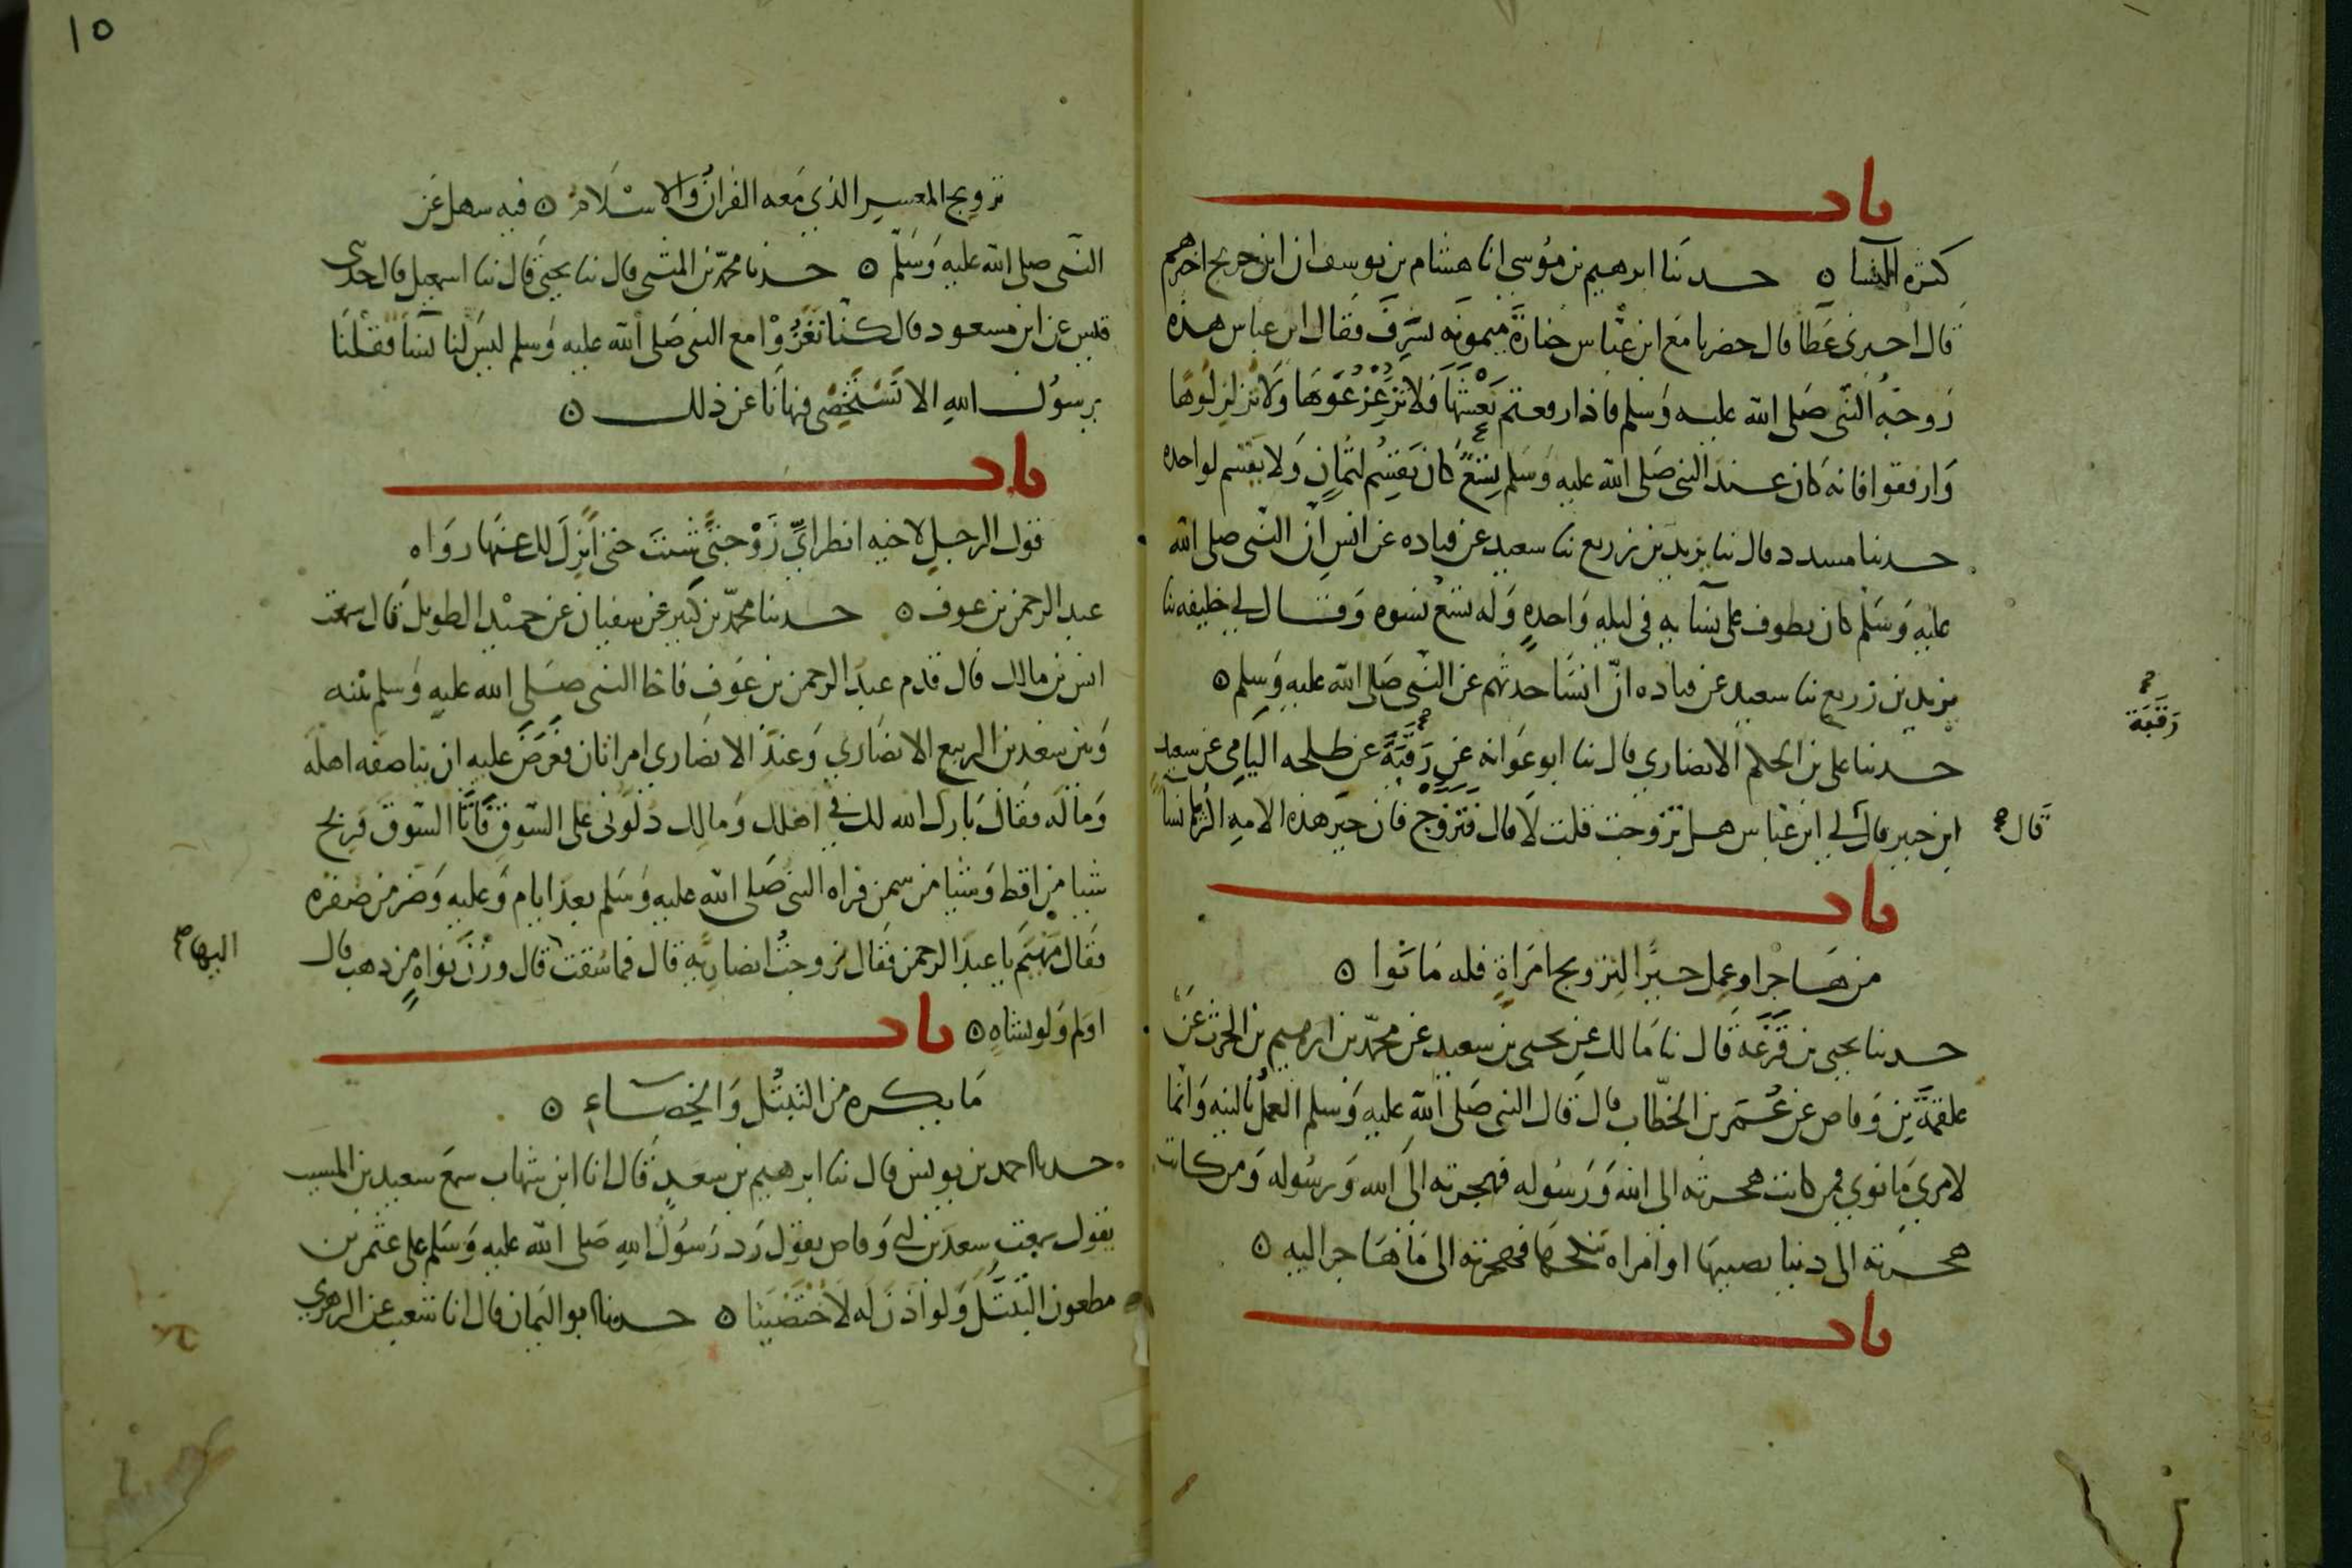 باب
كثره النسا ۝ حدثنا ابرهيم بن موسي انا هشام بن يوسف ان ابن جريج اخبرهم
قال اخبرني عطا قال حضرنا مع ابن عباس جنازة ميمونه بسرف فقال ابن عباس هذه
زوجة النبي صلى الله عليه وسلم فاذا رفعتم نعشها فلا تزعزعوها ولا تزلزلوها
وارفقوا فانه كان عند النبي صلى الله عليه وسلم تسع كان يقسم لثمان ولا يقسم لواحده
حدثنا مسدد قال ثنا يزيد بن زريع ثنا سعيد عن قتاده عن انس ان النبي صلى الله
عليه وسلم كان يطوف على نسآيه في ليله واحدة وله تسع نسوه وقال لي خليفه ثنا
يزيد بن زريع ثنا سعيد عن قتاده ان انسا حدثهم عن النبي صلى الله عليه وسلم ۝
رقبة
حدثنا على بن الحكم الانصاري قال ثنا ابو عوانه عن رقبة عن طلحه اليامي عن سعيد
قال
ابن جبير قال لي ابن عباس هل تزوجت قلت لا قال فتزوج فان خير هذه الامه اكثرها نسا
باب
من هاجر او عمل خيرا لتزويج امراة فله ما نوا ۝
حدثنا يحيى بن قزعة قال نا مالك عن يحيى بن سعيد عن محمد بن ابرهيم بن الحرث عن
علقمة بن وقاص عن عمر بن الخطاب قال قال النبي صلى الله عليه وسلم العمل بالنيه وانما
لامري ما نوي فمن كانت هجرته الى الله ورسوله فهجرته الى الله ورسوله ومن كانت
هجرته الى دنيا يصيبها او امراه ينكحها فهجرته الى ما هاجر اليه ۝
باب
١٥
تزويج المعسر الذي معه القران والاسلام ۝ فيه سهل عن
النبي صلى الله عليه وسلم ۝ حدثنا محمد بن المثنى قال ثنا يحيى قال ثنا اسمعيل قال حدثنى
قيس عن ابن مسعود قال كنا نغزوا مع النبي صلى الله عليه وسلم ليس لنا نسآ فقلنا
يرسول الله الا نستخصي فنهانا عن ذلك ۝
باب
قول الرجل لاخيه انظر اي زوجتي شئت حتى انزل لك عنها رواه
عبد الرحمن بن عوف ۝ حدثنا محمد بن كثير عن سفيان عن حميد الطويل قال سمعت
انس بن مالك قال قدم عبد الرحمن بن عوف فاخا النبي صلى الله عليه وسلم بينه
وبين سعد بن الربيع الانصاري وعند الانصاري امراتان فعرض عليه ان يناصفه اهله
وماله فقال بارك الله لك في اهلك ومالك دلوني على السوق فاتا السوق فربح
شيا من اقط وشيا من سمن فراه النبي صلى الله عليه وسلم بعد ايام وعليه وضر من صفره
فقال مهيم يا عبد الرحمن فقال تزوجت انصاريه قال فما سقت قال وزن نواة من ذهب قال
اليها
اولم ولو بشاه ۝ باب
ما يكره من التبتل والخصاء ۝
حدثنا احمد بن يونس قال ثنا ابرهيم بن سعد قال انا ابن شهاب سمع سعيد بن المسيب
يقول سمعت سعد بن ابي وقاص يقول رد رسول الله صلى الله عليه وسلم على عثمن بن
مظعون التبتل ولو اذن له لاختصينا ۝ حدثنا ابو اليمان قال انا شعيب عن الزهري